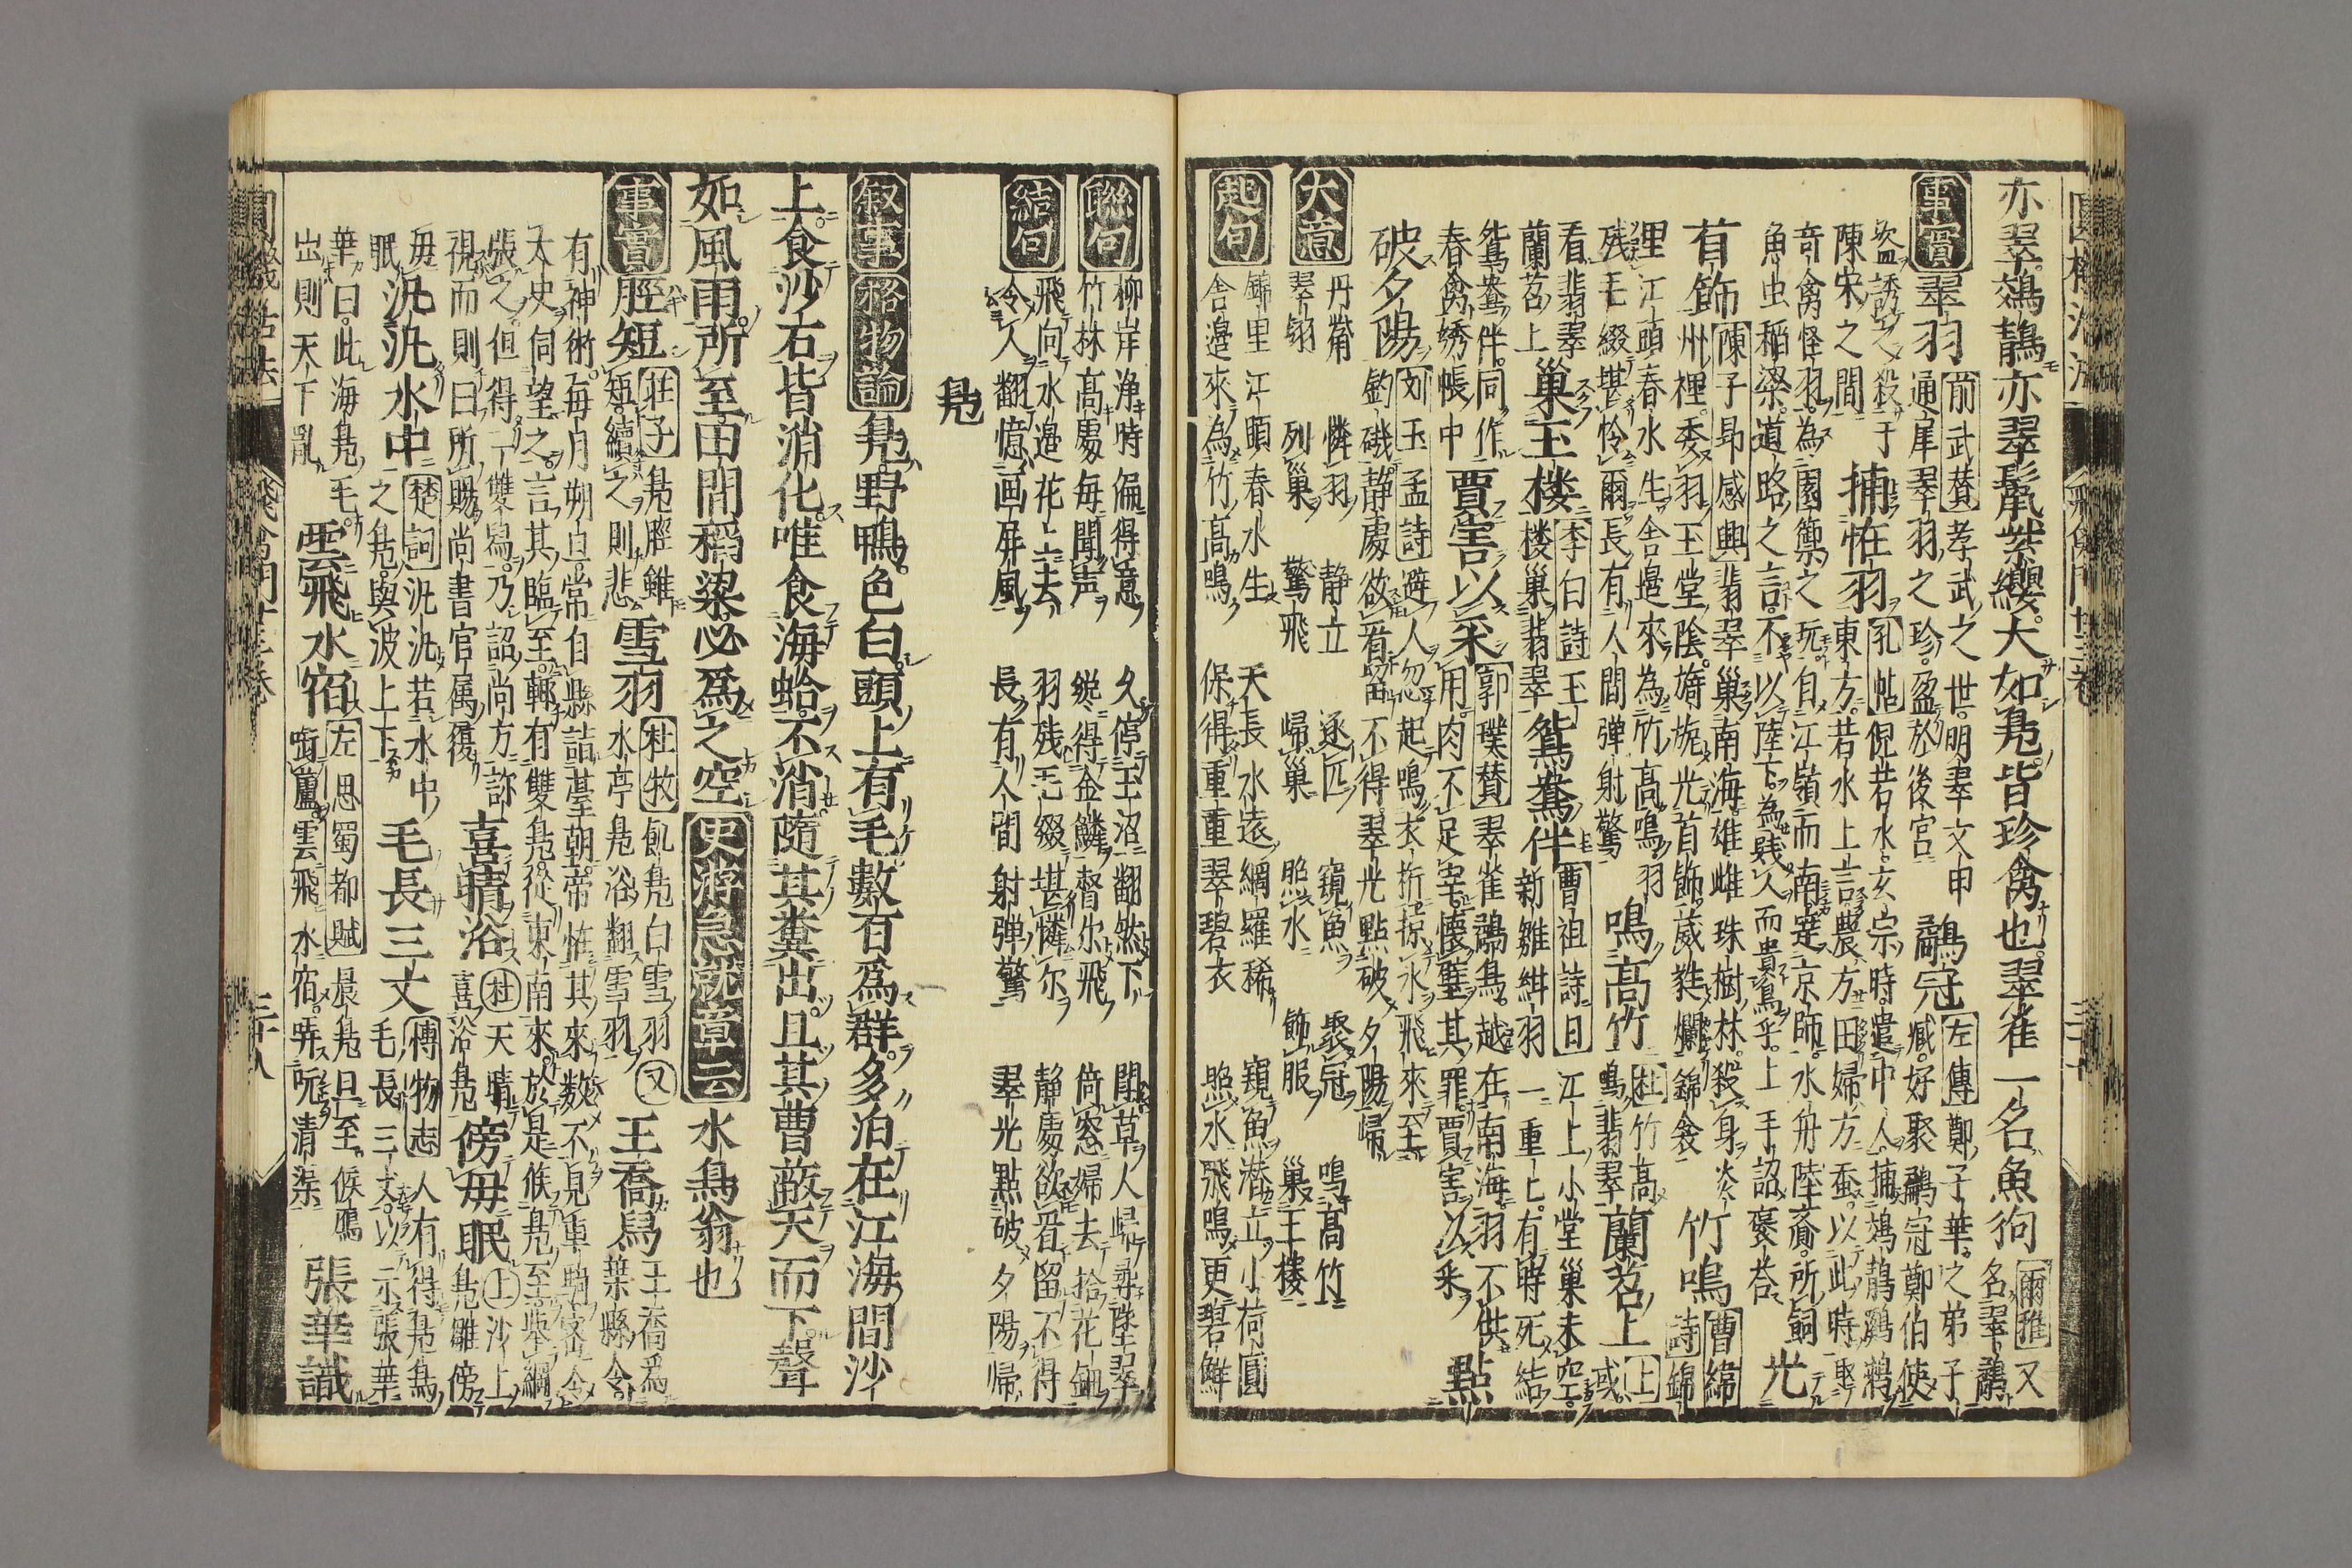 亦翠鷸鶄亦翠鬣紫纓大如鳬皆珍禽也翠雀一名魚狗
爾雅又
名翠鷸
事實
翠羽
前武賛孝武之世明犀文甲
通犀翠羽之珍盈於後宮
鷸冠
左傳鄭子華之弟子
臧好聚鷸冠鄭伯使
盗誘之殺于
陳宋之間
捕怪羽
孔帖倪若水玄宗時遣中人捕鵁鶄鸂鶒
東方若水上言農方田婦方蚕以此時聚
奇禽怪羽為園籞之玩自江嶺而南達京師水舟陸齎所飼
魚虫稻梁道路之言不以陸下為賎人而貴鳥乎上手詔褒荅
光有飾
陳子昻感興翡翠巢南海雄雌珠樹林殺身炎
州裡委羽玉堂陰旖旎光首飾葳蕤爛錦衾
竹鳴
曹緯
詩錦
里江頭春水生舎邉來為竹高鳴羽
残毛綴堪怜爾長有人間弾射驚
鳴高竹
杜竹高
鳴翡翠
蘭苕上
上
或
看翡翠
蘭苕上
巢玉楼
李白詩玉
楼巢翡翠
鴛鴦伴
曹祖詩曰江上小堂巢未空
新雛紺羽一重上有時死結
鴛鴦伴同作
春禽綉帳中
賈害以采
郭璞賛翠雀鷸鳥越在南海羽不供
用肉不足宰懷璧其罪賈害以采
點破夕陽
刘玉孟詩避人忽起鳴衣桁掠水飛來至
釣磯静處欲看留不得翠光點破夕陽帰
大意
丹觜
憐羽
静立
逐匹
窺魚
聚冠
鳴高竹
翠翎
列巢
驚飛
帰巢
照水
飾服
巢玉楼
起句
錦里江頭春水生
天長水遠網羅稀
窺魚潜立小荷圓
舎邉來為竹高鳴
保得重重翠碧衣
照水飛鳴更碧鮮
聯句
柳岸浄時偏得意
久停玉沼翻然下
閗草人帰尋墜翠
竹林高處毎聞声
縦得金鱗督尔飛
倚窓婦去拾花鈿
結句
飛向水邉花上去
羽残毛綴堪憐尓
静處欲看留不得
令人翻憶画屏風
長有人間射弾驚
翠光點破夕陽帰
鳬
叙事
格物論
鳬野鴨色白頭上有毛數百爲群多泊在江海間沙
上食沙石皆消化唯食海蛤不消隨其糞出且其曹蔽天而下聲
如風雨所至田間稻梁必爲之空
史游急就章云
水鳥翁也
事實
脛短
荘子鳬脛雖
短續之則悲
雪羽
杜牧飢鳬白雪羽又
水亭鳬浴翻雪羽
王喬舄
王喬爲
葉縣令
有神術毎月朔旦常自縣詣臺朝帝怪其來数不見車騎密令
太史伺望之言其臨至輙有雙鳬從東南來於是候鳬至挙網
張之但得一雙舄乃詔尚方診
視而則曰所賜尚書官属履
喜晴浴
杜天晴
喜浴鳬
傍毋眠
上沙上
鳬雛傍
毋
眠
汎汎水中
楚詞汎汎若水中
之鳬與波上下
毛長三丈
慱物志人有得鳬鳥
毛長三丈以示張華
華曰此海鳬毛
出則天下亂
雲飛水宿
左思蜀都賦晨鳬旦至候鴈
啣蘆雲飛水宿哢吭清渠
張華識
圓機活法
飛禽門廿三巻
三十八